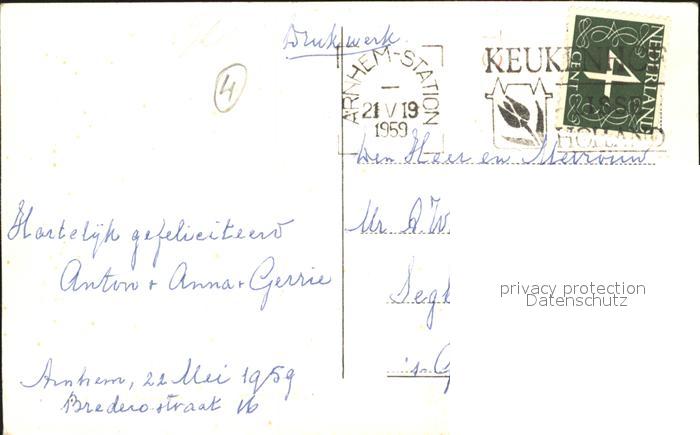 Drukwerk.
4
ARNHEM-STATION
21 V 19
1959
KEUKENHOF
HOLLAND
NEDERLAND
4
CENT
Den Heer en Mevrouw
Mr
Hartelijk gefeliciteerd
Anton + Anna + Gerrie
privacy protection
Datenschutz
Arnhem, 22 Mei 1959
Brederostraat 16